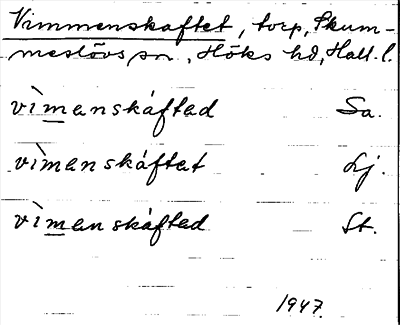 Vimmenskaftet, torp, Skum-
meslövs sn., Höks hd, Hall. l.
vìmanskáftad Sa.
vìmanskáftat Lj.
vìmanskáftad St.
1947.